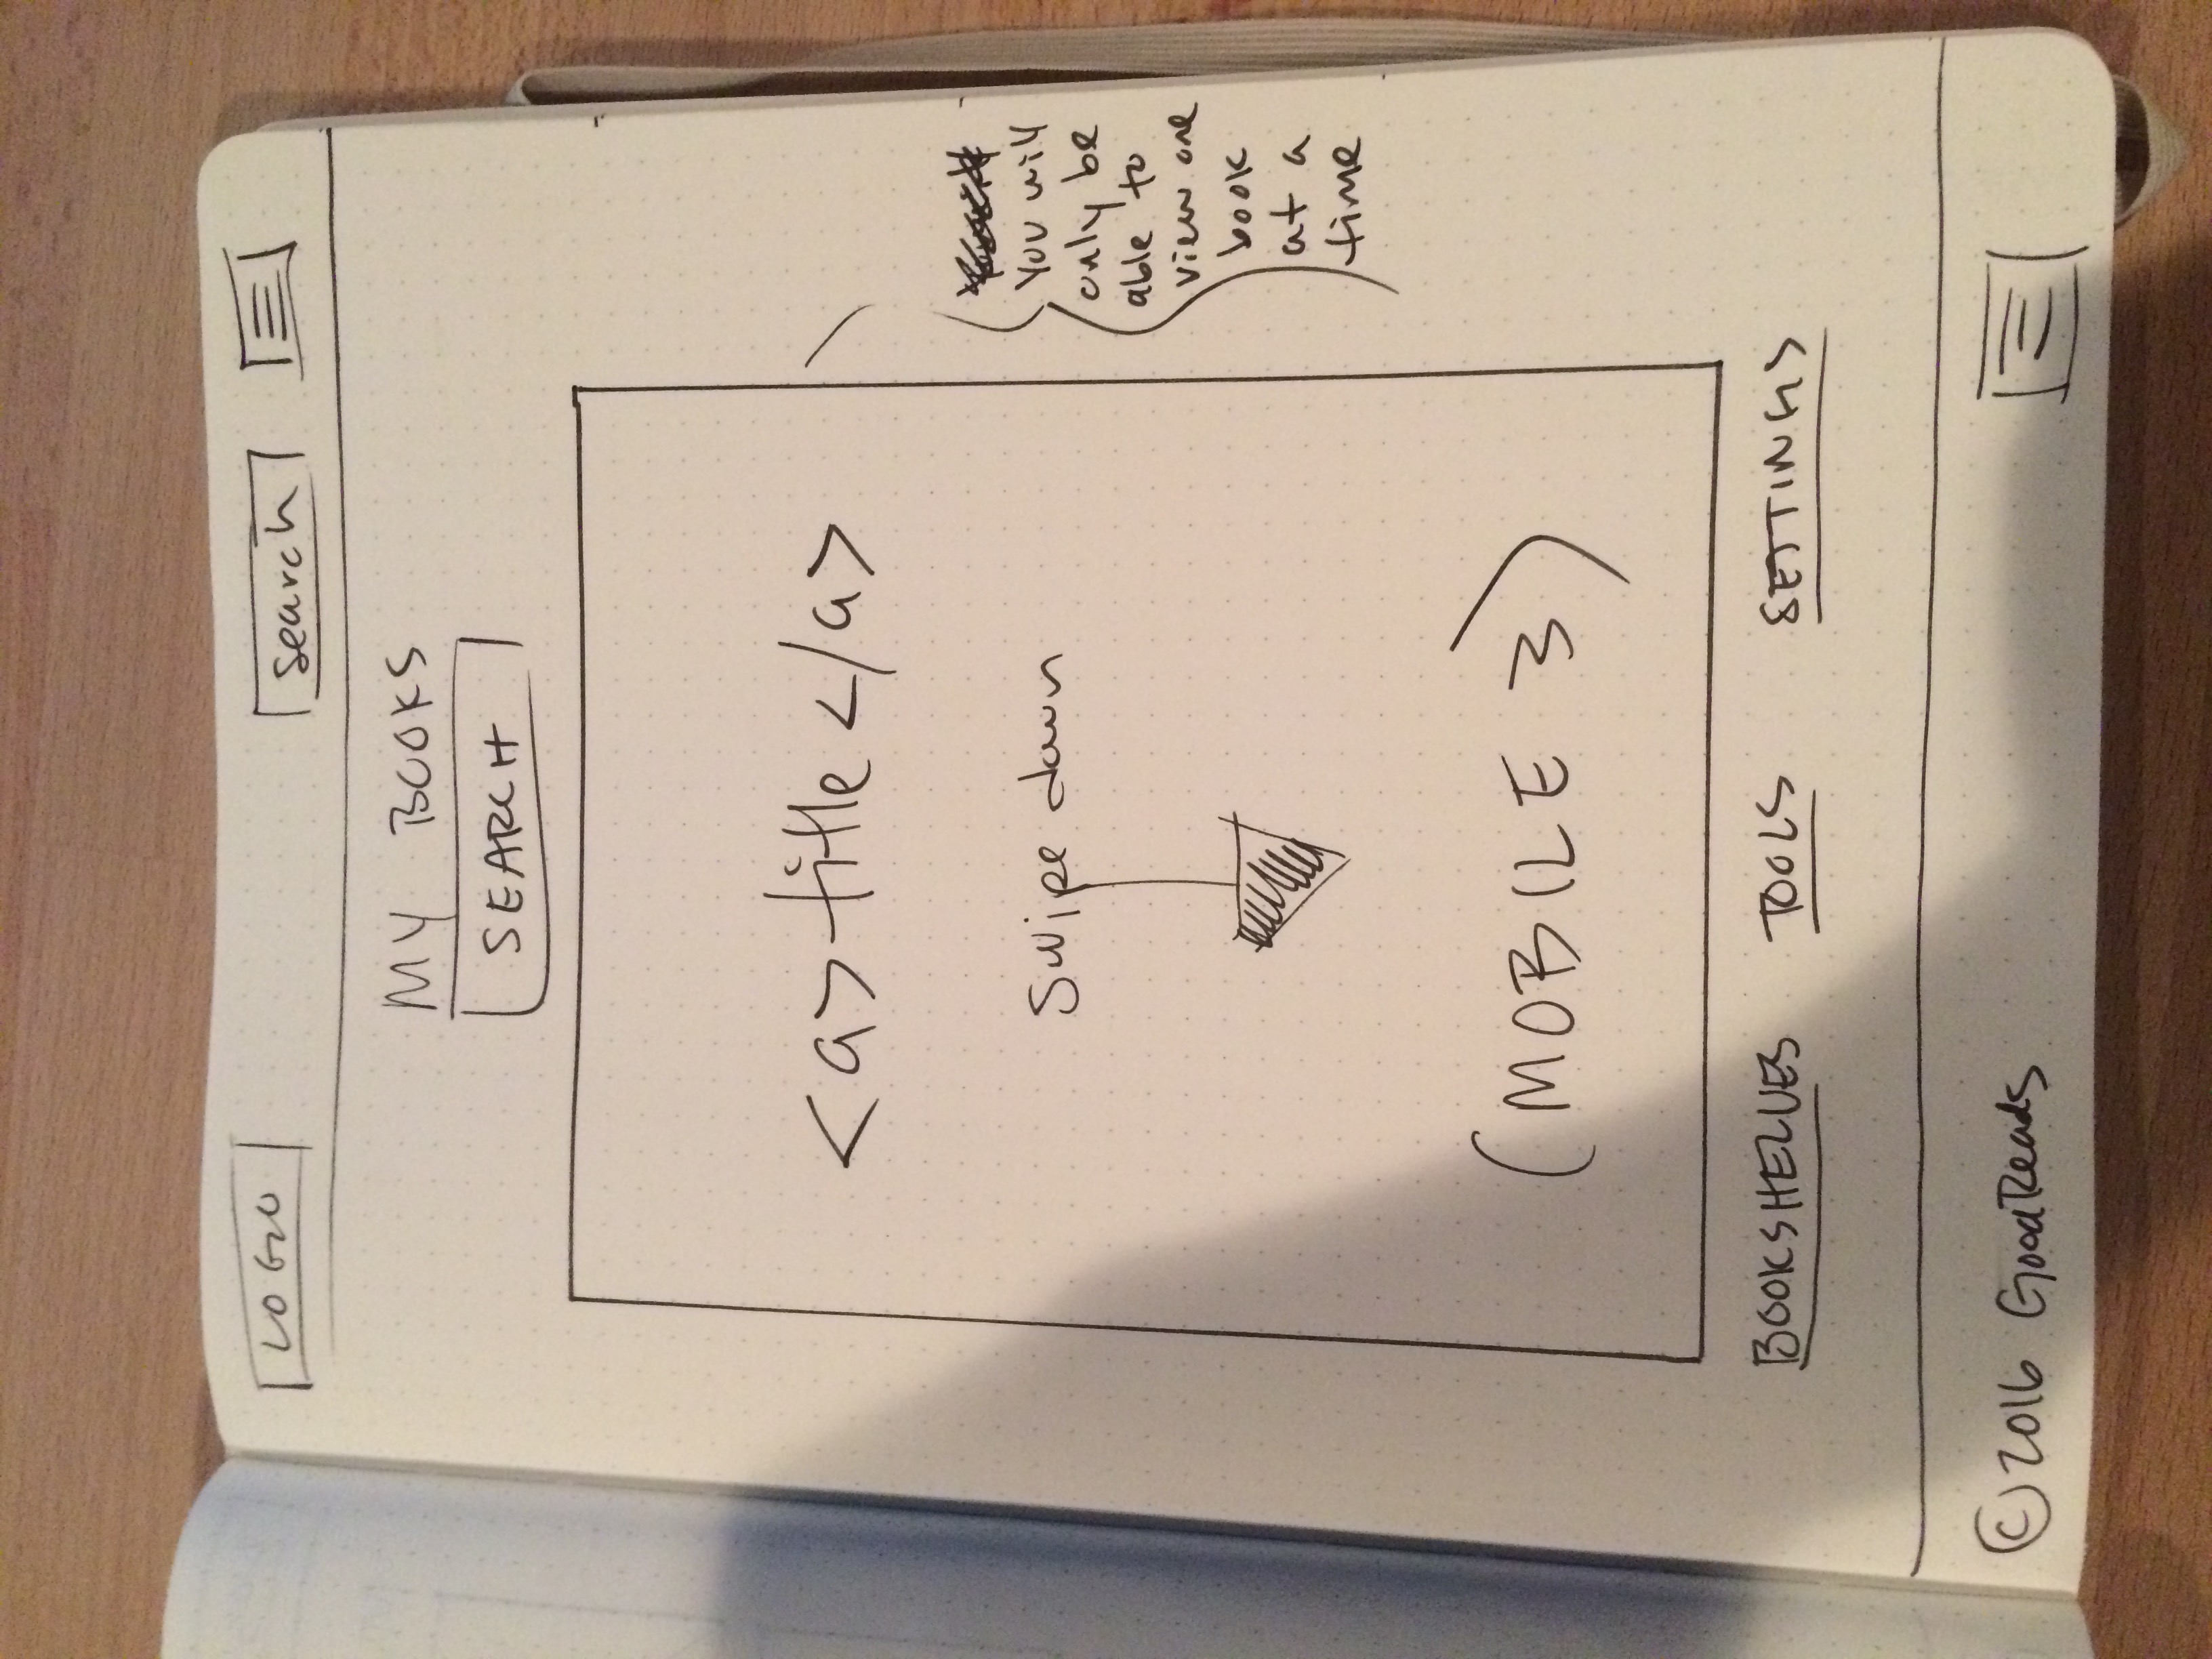 LOGO
search
MY BOOKS
SEARCH
<a> title </a>
Swipe down
You will
only be
able to
view one
book
at a
time
(MOBILE 3)
BOOKSHELVES TOOLS SETTINGS
© 2016 GoodReads